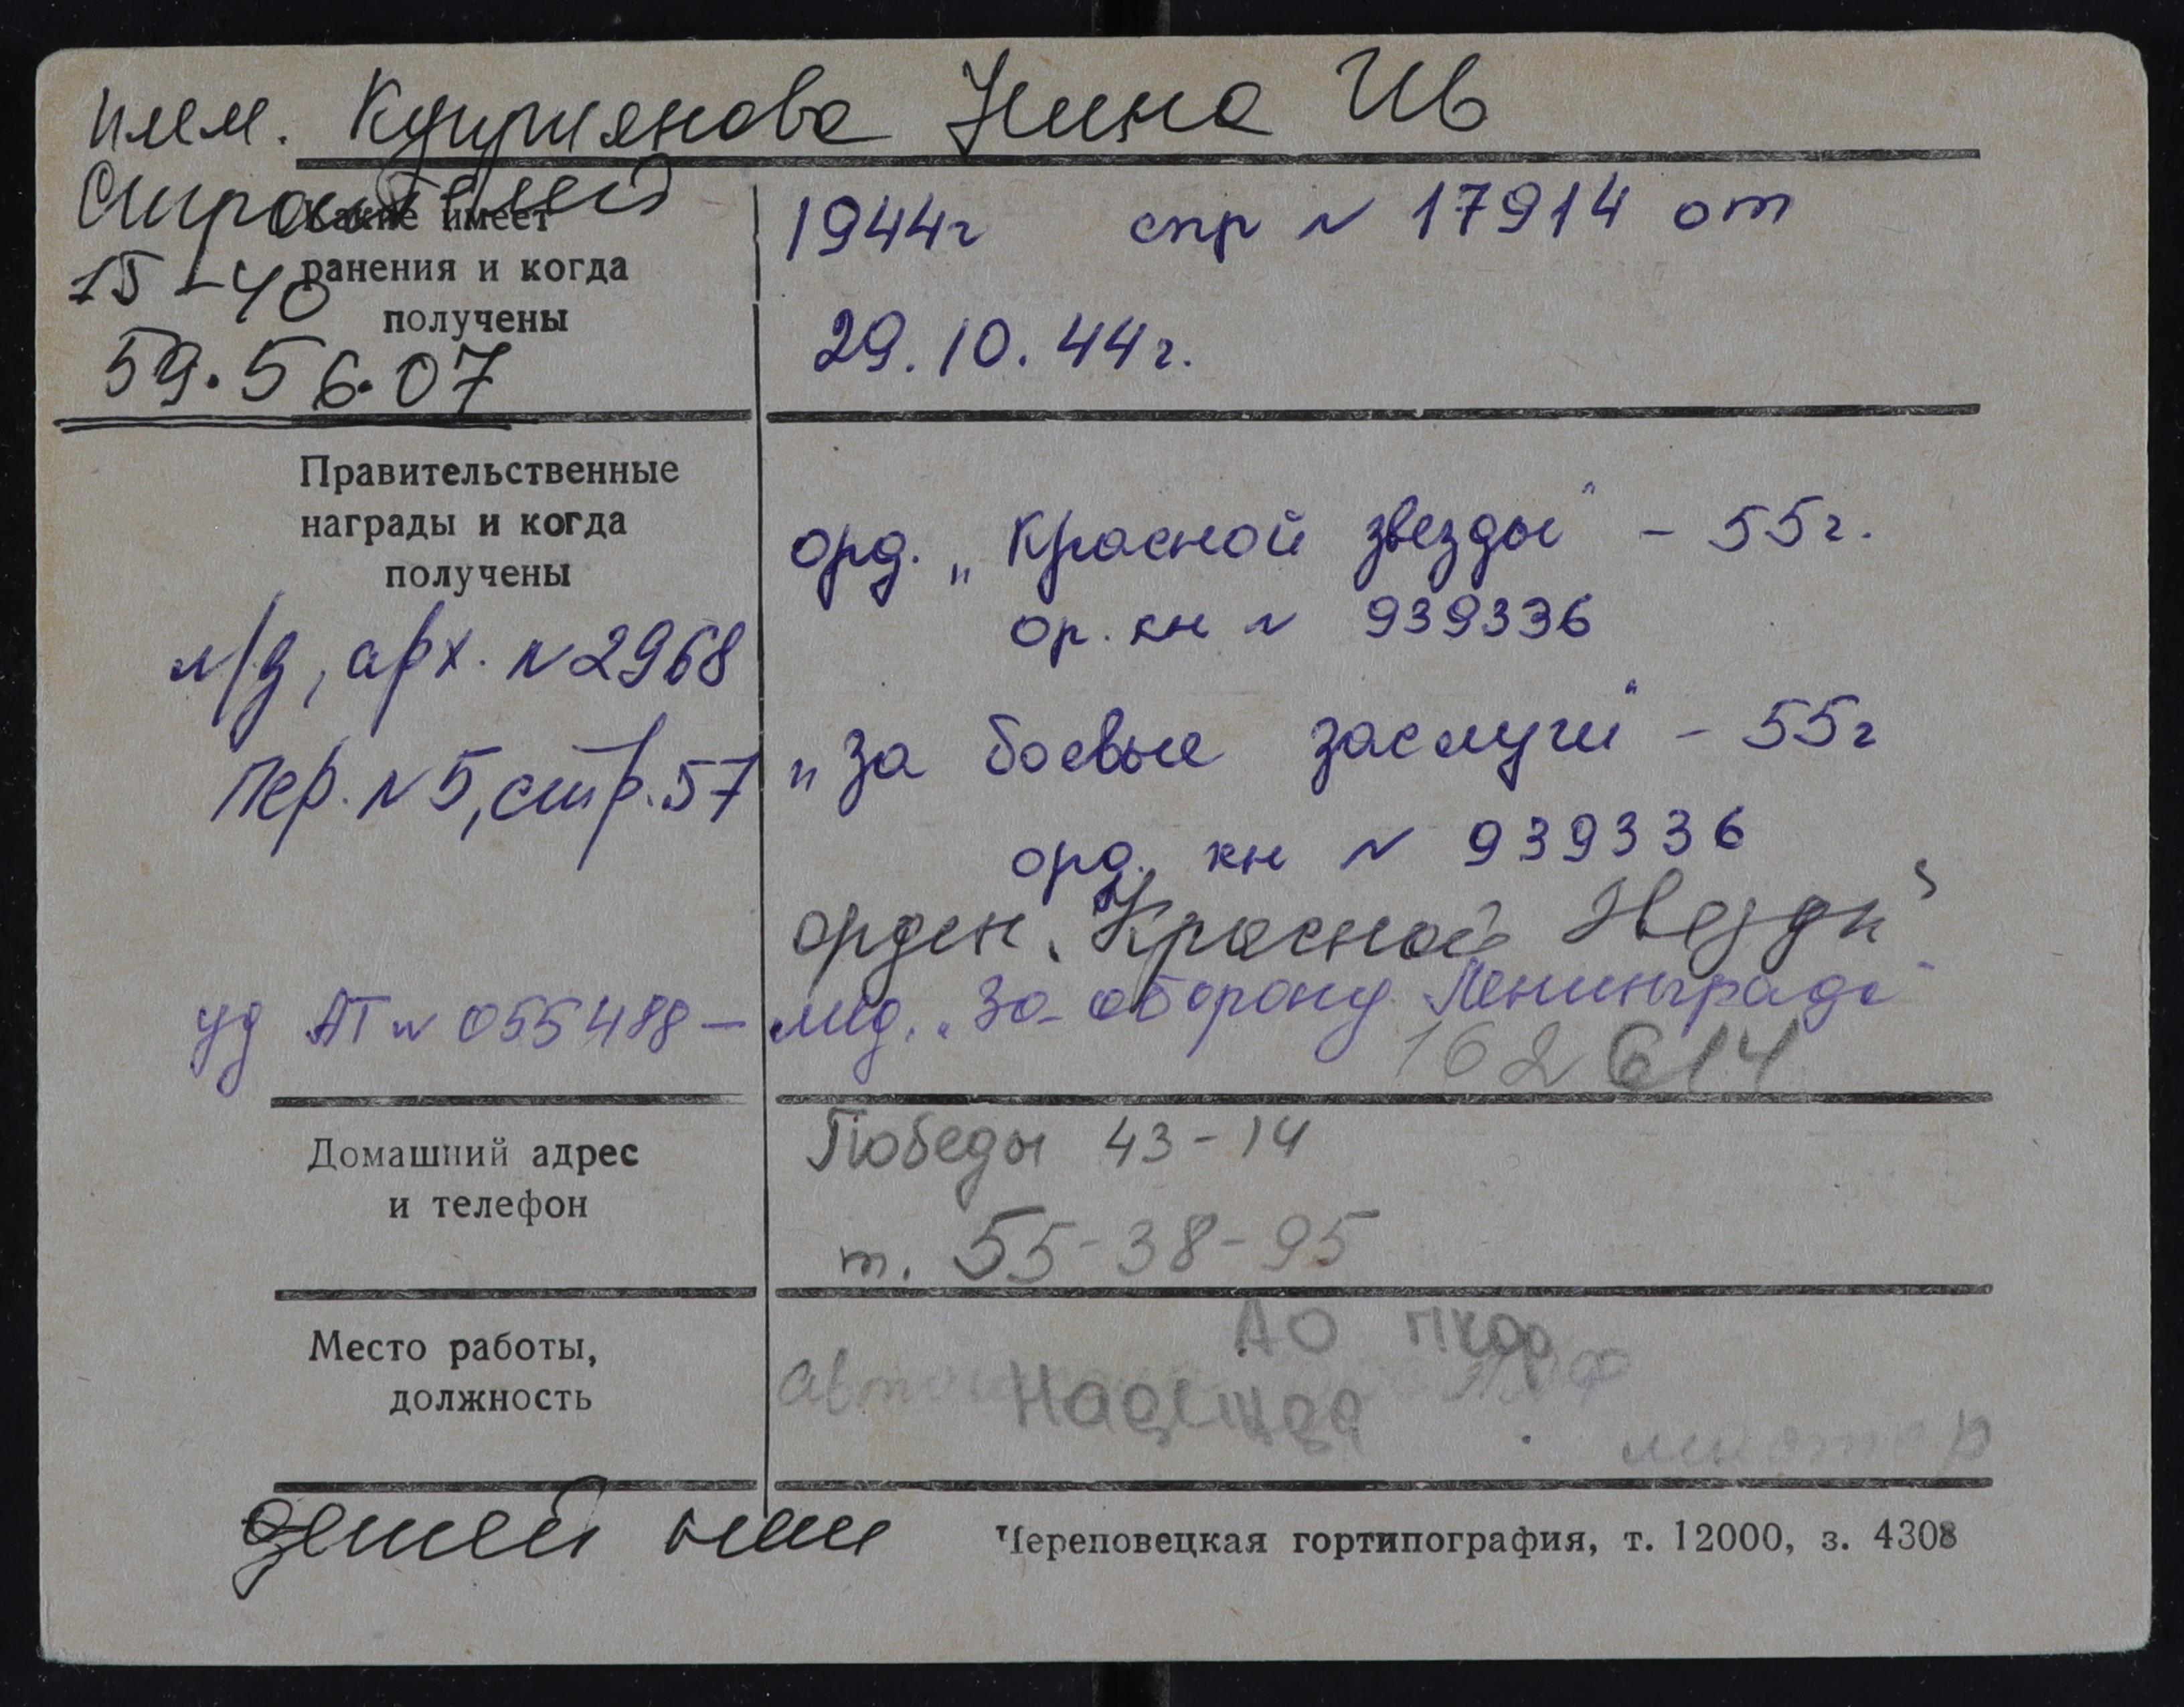 плем. Куприянова Нина Ив
Строителей
15-40
59.56.07
Какие имеет
ранения и когда
получены
1944г спр № 17914 от
29.10.44г.
Правительственные
награды и когда
получены
л/д, арх. №2968
пер. №5, стр. 57
орд. „Красной звезды" - 55г.
ор. кн № 939336
„За боевые заслуги" - 55г
орд. кн № 939336
орден „Красной Звезды"
уд АТ № 055488 — мед. „За оборону Ленинграда"
162614
Домашний адрес
и телефон
Победы 43-14
т. 55-38-95
Место работы,
должность
АО
Надежда
мастер
детей нет
Череповецкая гортипография, т. 12000, з. 4308